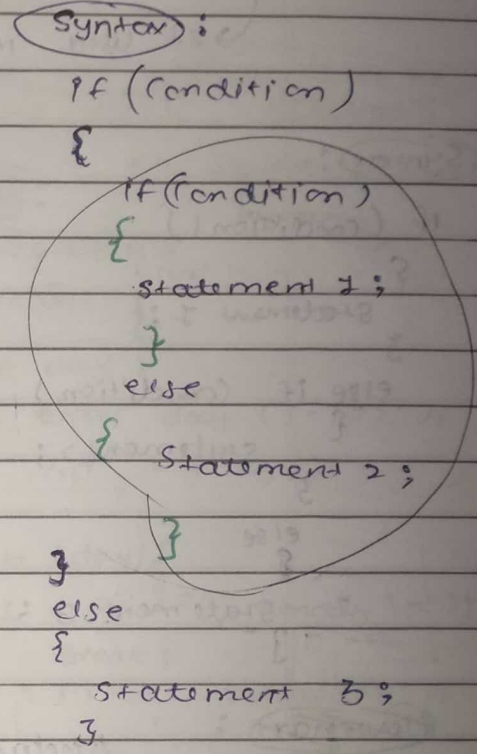 Syntax :
if (Condition)
{
if (Condition)
{
Statement 1 ;
}
else
{
Statement 2 ;
}
}
else
{
Statement 3 ;
}